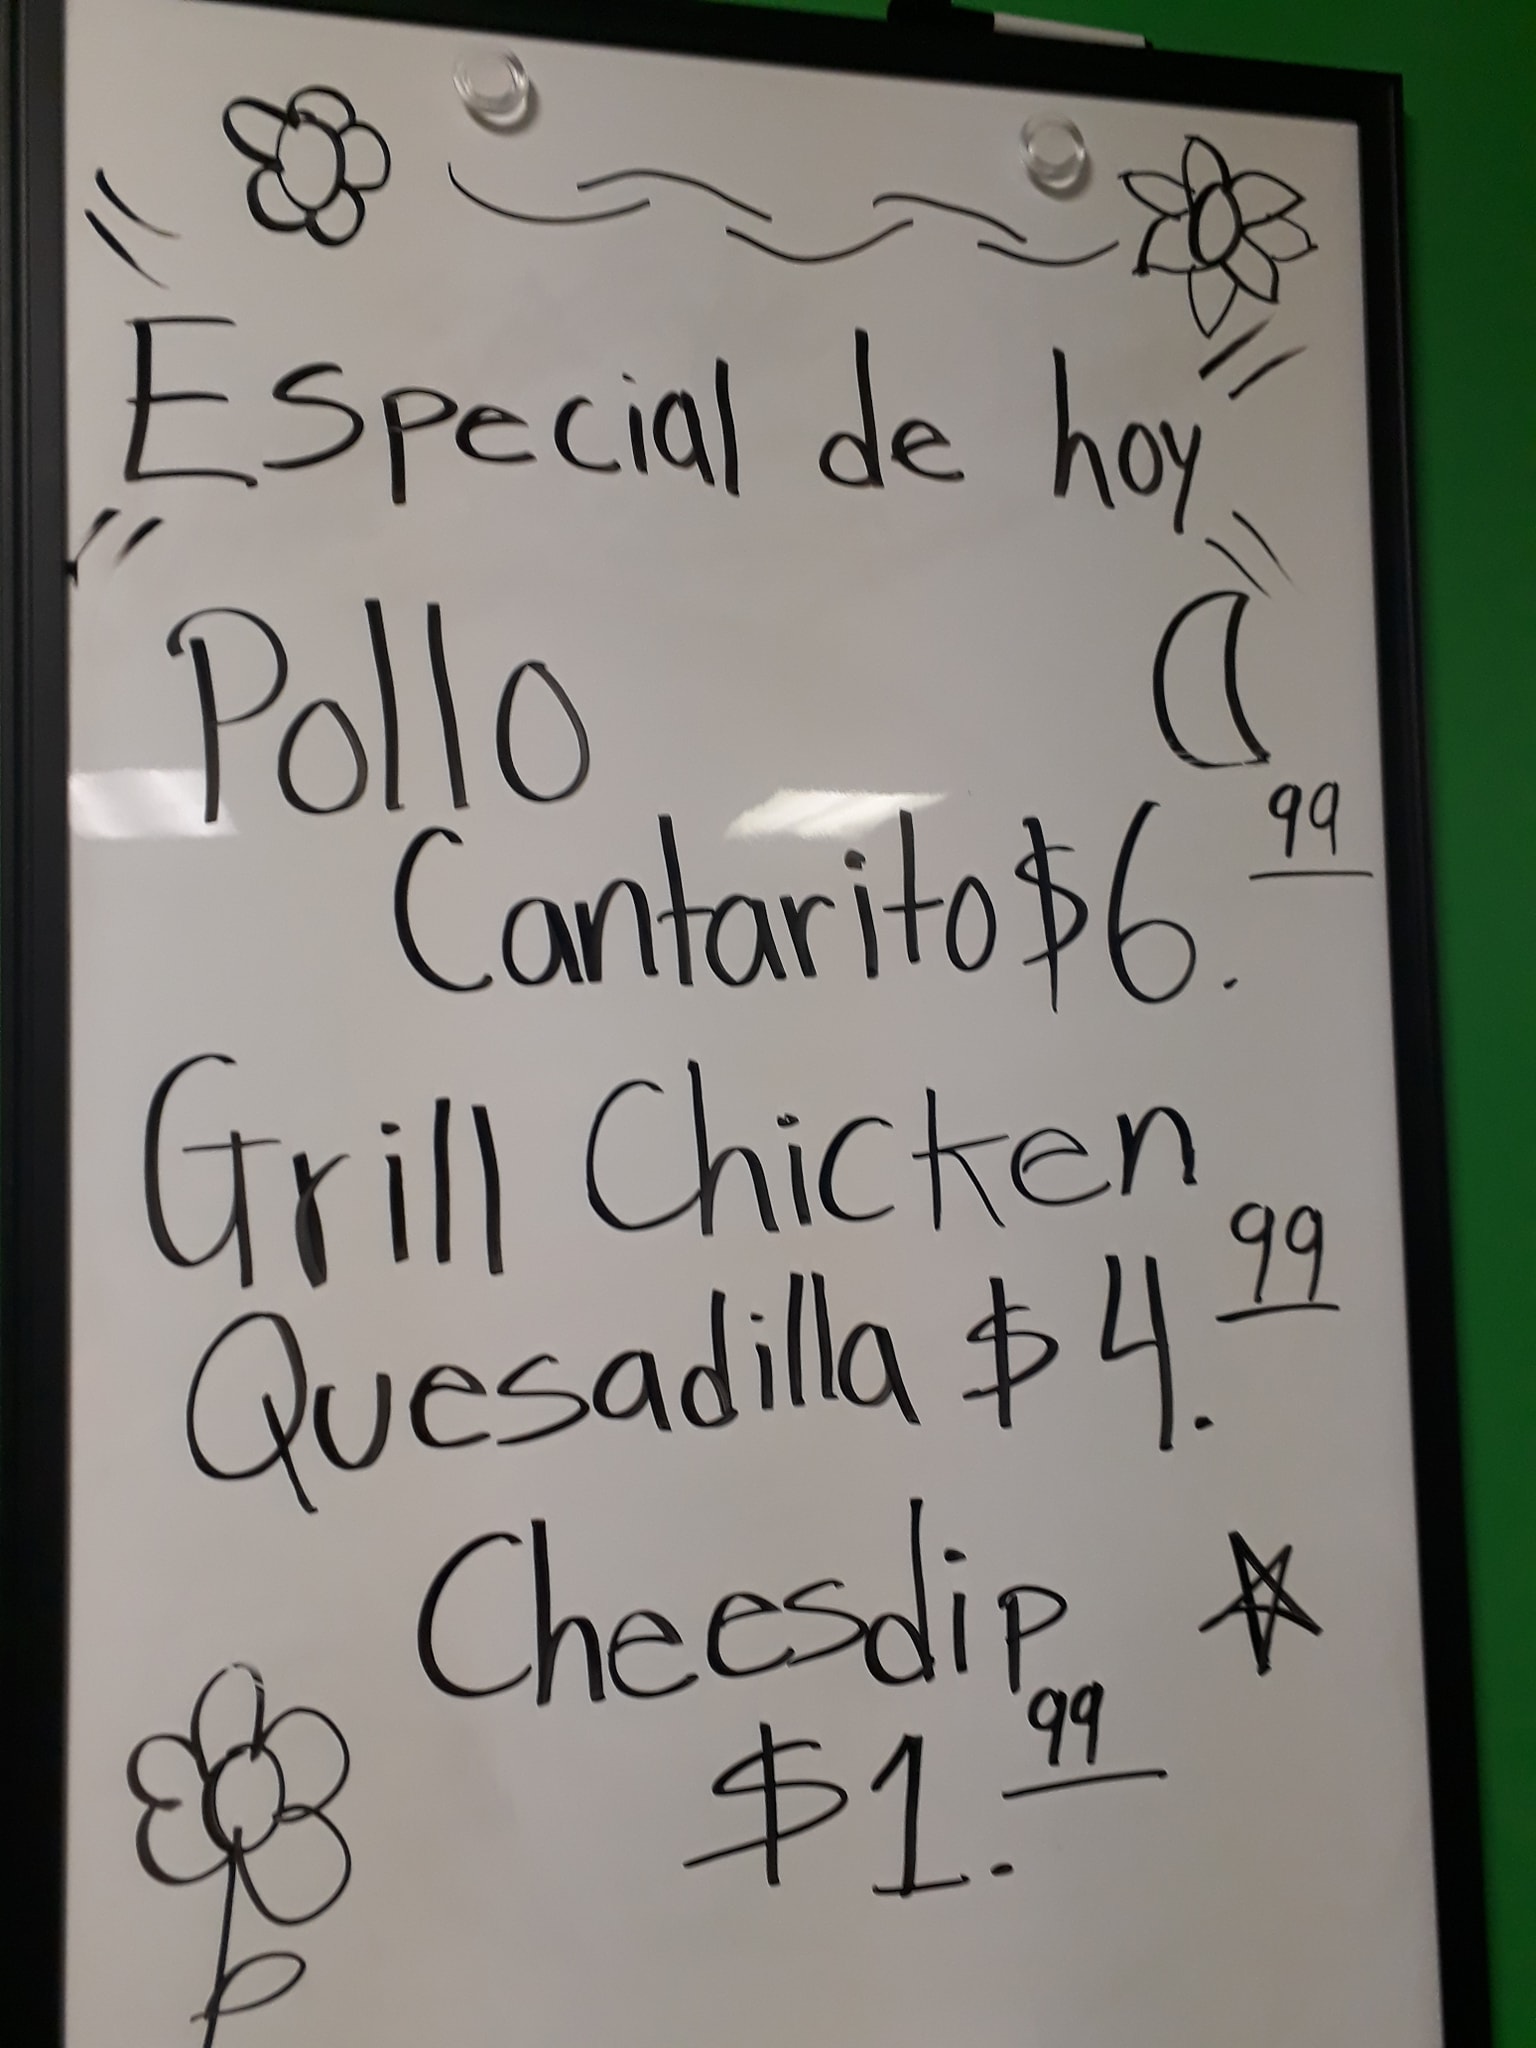 Especial de hoy
Pollo
Cantarito $6.99
Grill Chicken
Quesadilla $4.99
Cheesdip
$1.99